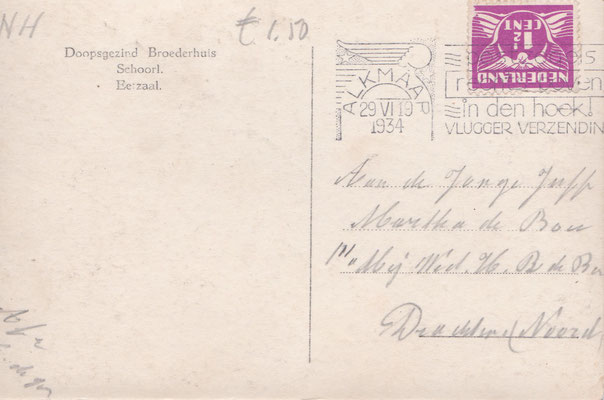 NH
€ 1.50
Doopsgezind Broederhuis
Schoorl.
Eetzaal.
ALKMAAR
29 VI 19
1934
in den hoek!
VLUGGER VERZENDIN
1½
CENT
NEDERLAND
Aan de Jonge Juff
Martha de Boer
Wed. H. B de Bo
Drachten (Noord